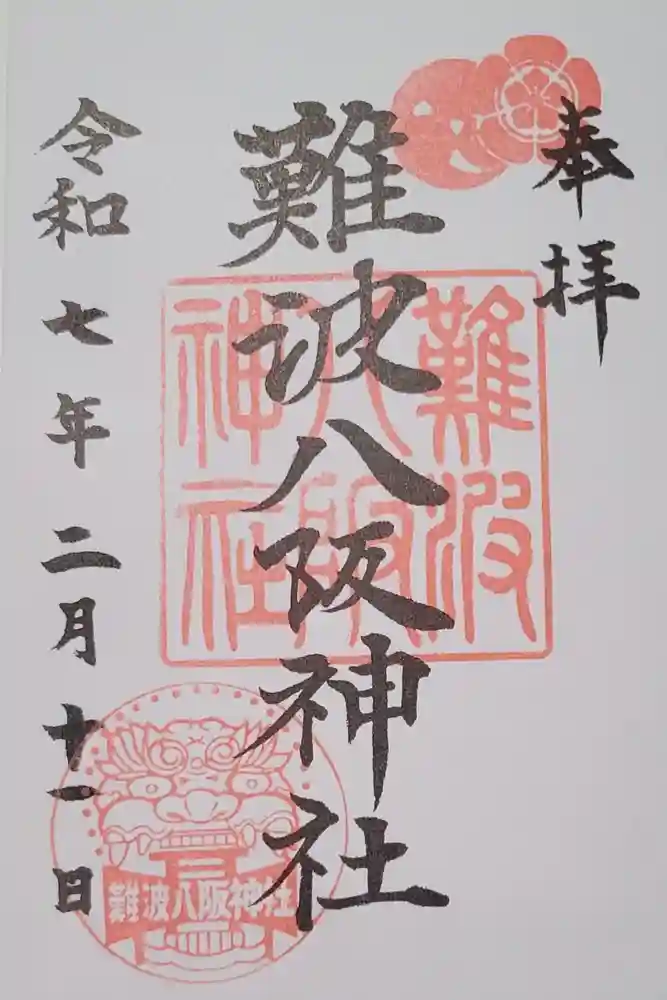 奉拝
難波八阪神社
難波
八阪
神社
令和七年二月十一日
難波八阪神社